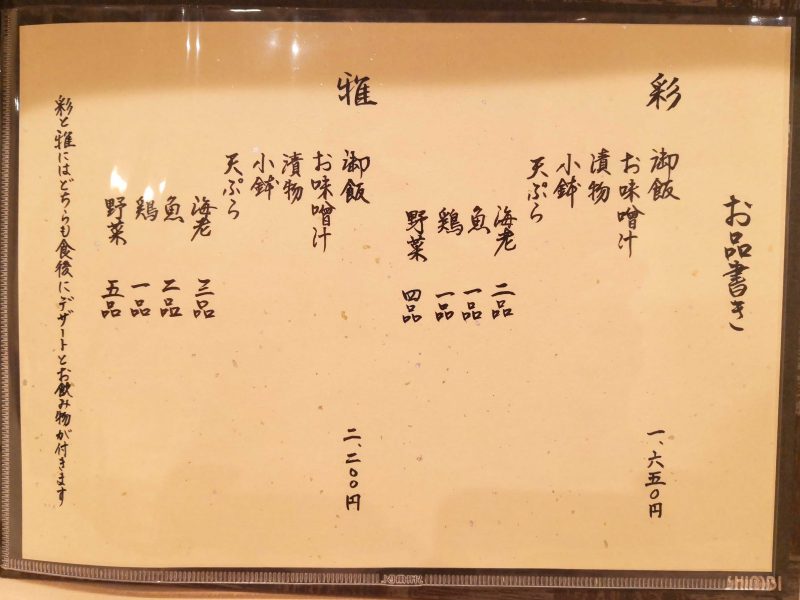 お品書き
彩
一、六五〇円
御飯
お味噌汁
漬物
小鉢
天ぷら
海老 二品
魚 一品
鶏 一品
野菜 四品
雅
二、二〇〇円
御飯
お味噌汁
漬物
小鉢
天ぷら
海老 三品
魚 二品
鶏 一品
野菜 五品
彩と雅にはどちらも食後にデザートとお飲み物が付きます
SHIMBI